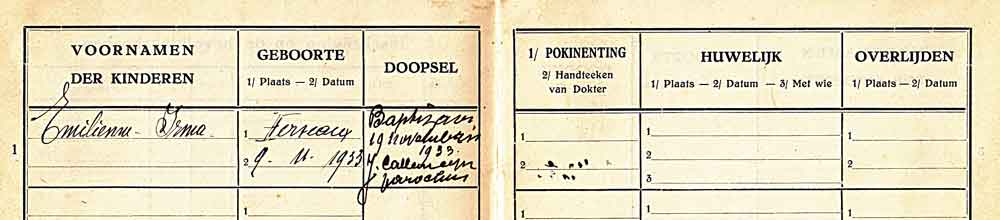 VOORNAMEN
DER KINDEREN
GEBOORTE
1/ Plaats — 2/ Datum
DOOPSEL
1/ POKINENTING
2/ Handteeken
van Dokter
HUWELIJK
1/ Plaats — 2/ Datum — 3/ Met wie
OVERLIJDEN
1/ Plaats — 2/ Datum
1
Emilienne - Irma
1
2 9. 11. 1933
Baptizavi
19 novembris
1933.
parochus
1
2
1
2
3
1
2
1
1
1
1